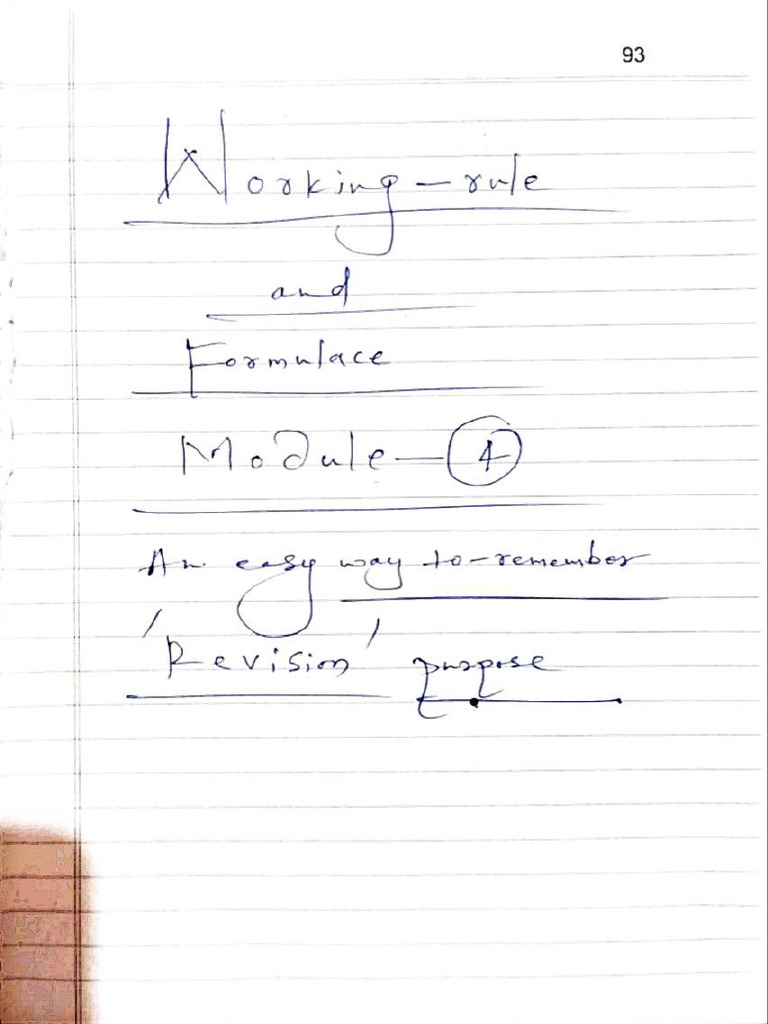 93
Working-rule
and
Formulace
Module-4
An easy way to-remember
'Revision' purpose